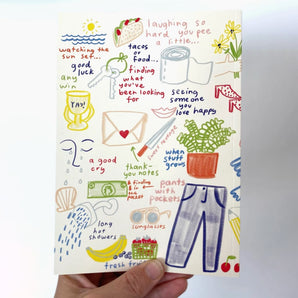 laughing so
hard you pee
a little...
watching the
sun set...
tacos
or food...
good
luck
finding
what
you've
been looking
for
any
win
seeing
someone
you
love happy
YAY!
a good
cry
thank-
you notes
when
stuff
grows
finding
$ in
the
pants with
pockets
long
hot
showers
sunglasses
fresh fruit